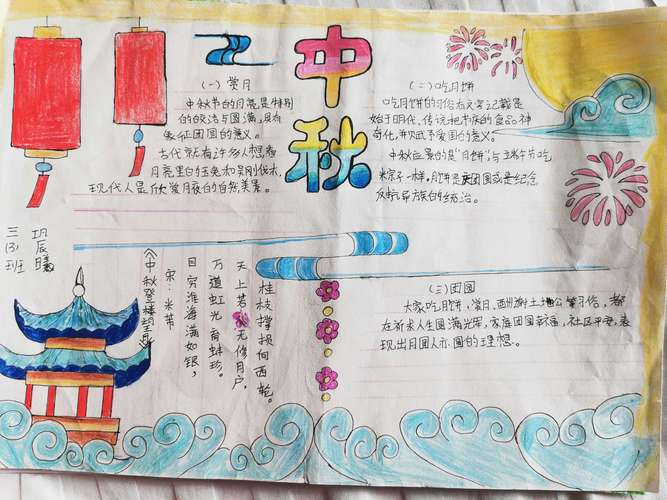 中秋
(一) 赏月
中秋节的月亮是特别
的皎洁与圆满,具有
象征团圆的意义。
古代就有许多人想看
月亮里的玉兔和吴刚伐木,
现代人是欣赏月夜的自然美景。
(二) 吃月饼
吃月饼的习俗有文字记载是
始于明代,传说把平庸的食品神
奇化,并赋予爱国的意义。
中秋应景的是"月饼"与"端午节吃
粽子一样,月饼是团圆或是纪念
反抗异族的统治。
三(3)班
辰曦
《中秋登楼望月》
宋:米芾
目穷淮海满如银,
万道虹光育蚌珍。
天上若无修月户,
桂枝撑损向西轮。
(三) 团圆
大家吃月饼,赏月,酬谢土地公等习俗,都
在祈求人生圆满光辉,家庭团圆幸福,社区平安,表
现出月圆人亦圆的理想。